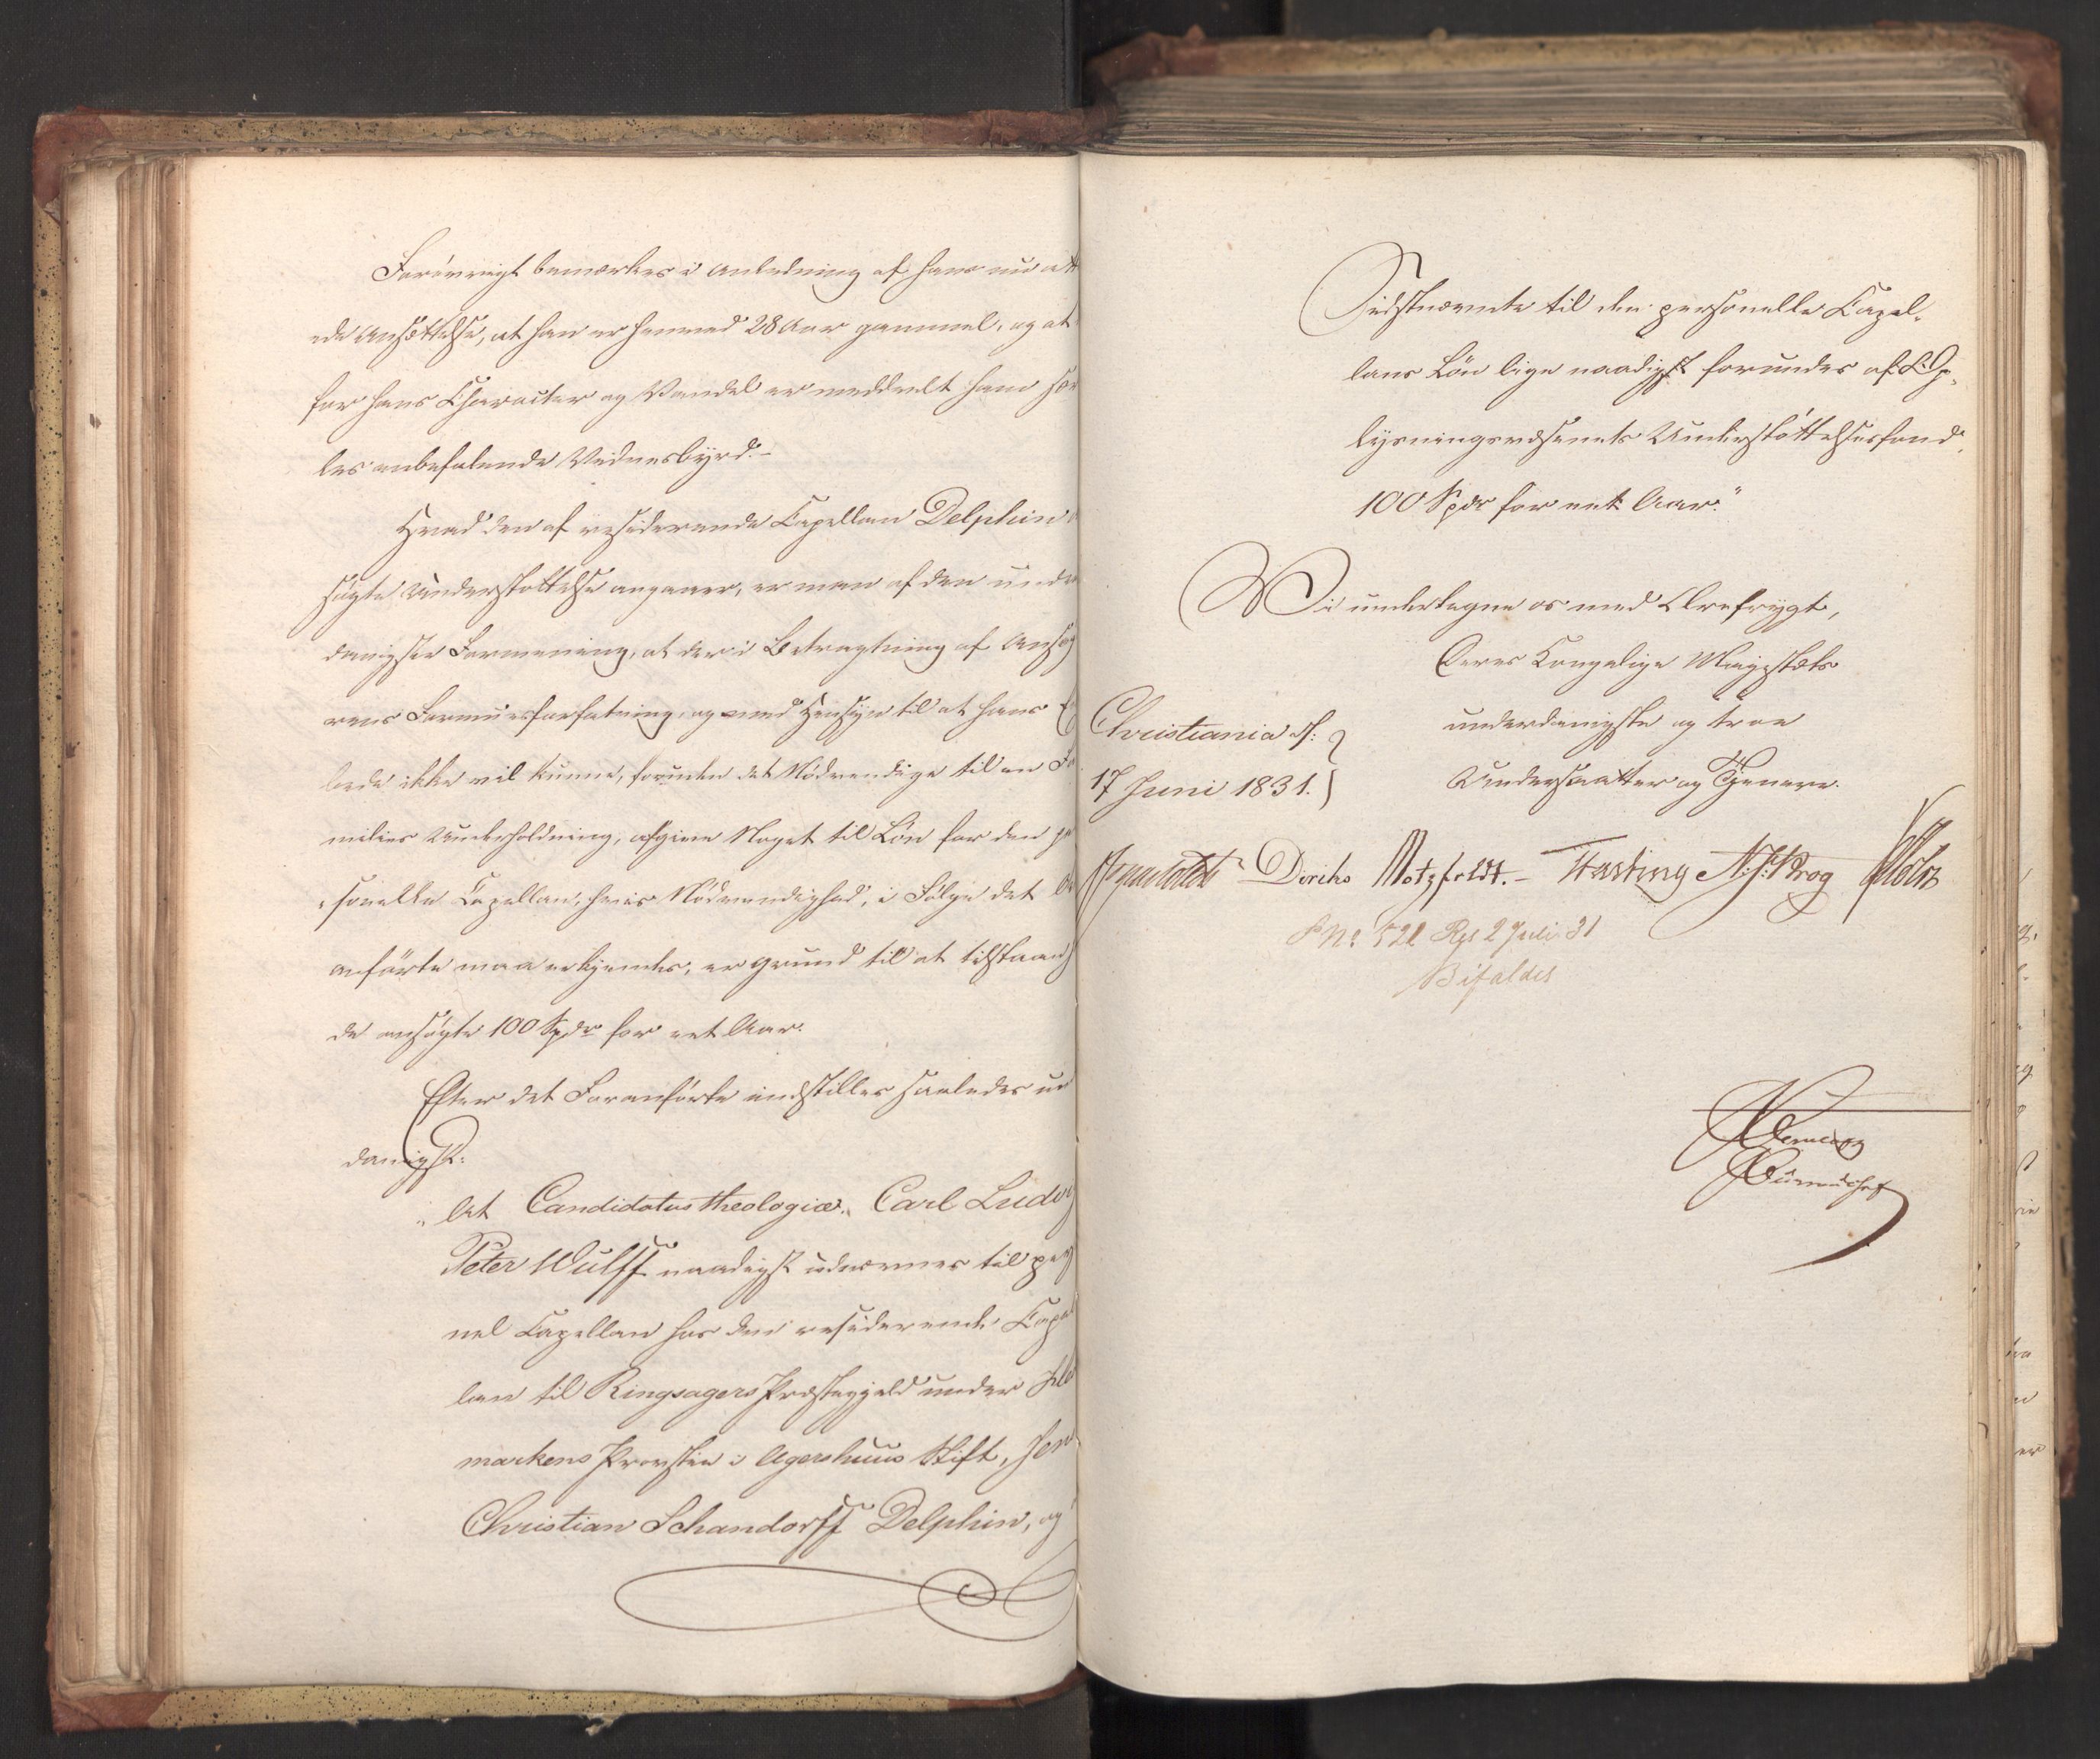 Forövrigt bemærkes i Anledning af hans nu att
ede Ansættelse, at han er henved 28 Aar gammel, og at
for hans Character og Vandel er meddeelt ham sær
les anbefalende Vidnesbyrd.-
Hvad den af residerende Capellan Delphin
søgte Understøttelse angaaer, er man af den under
danigste Formening, at der i Betragtning af Ansøg
rens Formuesforfatning, og med Hensyn til at hans
bede ikke vil kunne, foruden det Nödvendige til en Fa
milies Underholdning, afgive Noget til Lön for den per
sonelle Capellan, hvis Nödvendighed, i Fölge det
anförte maa erkjendes, er Grund til at tilstaaes
de ansøgte 100 Spdr for eet Aar.
Efter det Foranförte indstilles saaledes un
danigst:
"At Candidatus theologiæ, Carl Ludvig
Peter Wulff naadigst udnævnes til perso
nel Capellan hos den residerende Capel
lan til Ringsagers Præstegjeld under Hede
markens Provstie i Agershuus Stift, Jens
Christian Schandorff Delphin, og
Sidstnævnte til den personelle Capel-
lans Lön lige naadigst forundes af Op-
lysningsvæsenets Understöttelsesfond
100 Spdr for eet Aar."
Vi undertegne os med Ærefrygt,
Deres Kongelige Majestæts
underdanigste og troe
Undersaatter og Tjenere.
Christiania d:
17 Juni 1831.
Diriks Motzfeldt.- Fasting N. J. Krog Holst
No 521 Rgs 2 Juli 31
Bifaldes